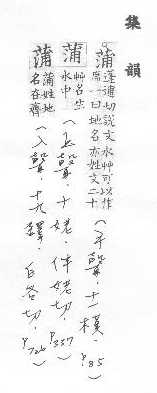 集韻
蒲 蓬逋切說文水艸可以作
席一曰地名亦姓文二十
(平聲.十一模.P.85)
蒲 艸名生
水中
(上聲.十姥.伴姥切.P.337)
蒲 蒲姑地
名在齊
(入聲.十九鐸.白各切.P.726)